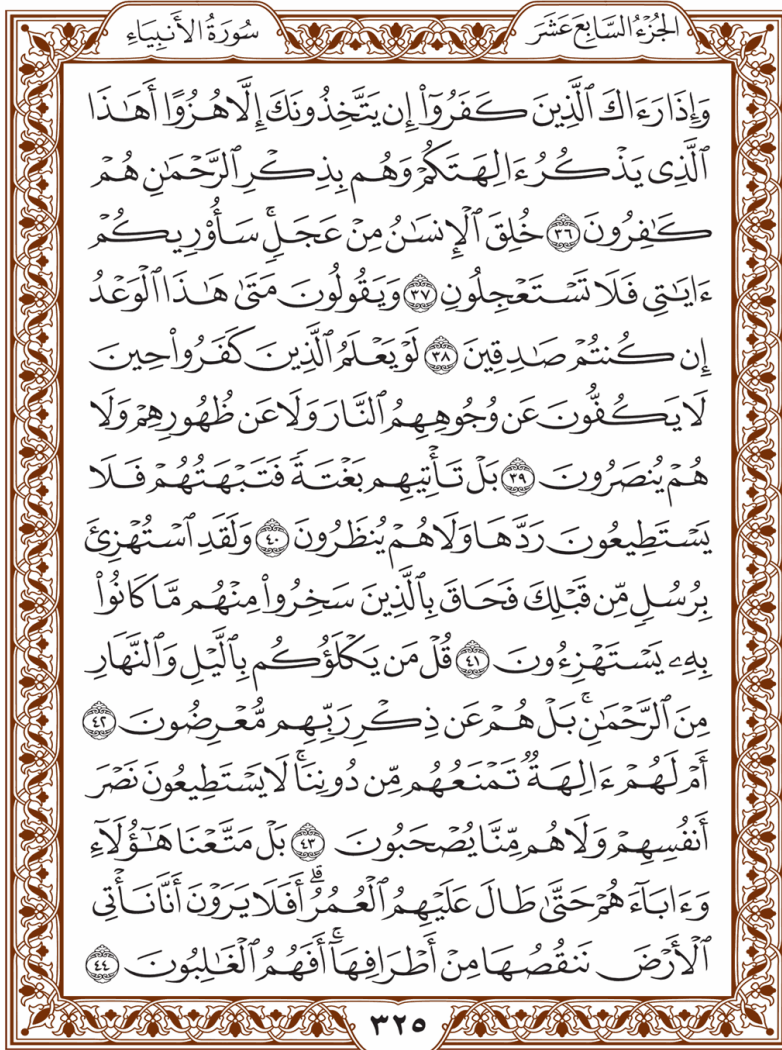 الجُزْءُ السَّابِعَ عَشَرَ
سُورَةُ الأَنبِيَاءِ
وَإِذَا رَءَاكَ ٱلَّذِينَ كَفَرُوٓا۟ إِن يَتَّخِذُونَكَ إِلَّا هُزُوًا أَهَـٰذَا
ٱلَّذِى يَذْكُرُ ءَالِهَتَكُمْ وَهُم بِذِكْرِ ٱلرَّحْمَـٰنِ هُمْ
كَـٰفِرُونَ ٣٦ خُلِقَ ٱلْإِنسَـٰنُ مِنْ عَجَلٍ ۚ سَأُو۟رِيكُمْ
ءَايَـٰتِى فَلَا تَسْتَعْجِلُونِ ٣٧ وَيَقُولُونَ مَتَىٰ هَـٰذَا ٱلْوَعْدُ
إِن كُنتُمْ صَـٰدِقِينَ ٣٨ لَوْ يَعْلَمُ ٱلَّذِينَ كَفَرُوا۟ حِينَ
لَا يَكُفُّونَ عَن وُجُوهِهِمُ ٱلنَّارَ وَلَا عَن ظُهُورِهِمْ وَلَا
هُمْ يُنصَرُونَ ٣٩ بَلْ تَأْتِيهِم بَغْتَةً فَتَبْهَتُهُمْ فَلَا
يَسْتَطِيعُونَ رَدَّهَا وَلَا هُمْ يُنظَرُونَ ٤٠ وَلَقَدِ ٱسْتُهْزِئَ
بِرُسُلٍ مِّن قَبْلِكَ فَحَاقَ بِٱلَّذِينَ سَخِرُوا۟ مِنْهُم مَّا كَانُوا۟
بِهِۦ يَسْتَهْزِءُونَ ٤١ قُلْ مَن يَكْلَؤُكُم بِٱلَّيْلِ وَٱلنَّهَارِ
مِنَ ٱلرَّحْمَـٰنِ ۗ بَلْ هُمْ عَن ذِكْرِ رَبِّهِم مُّعْرِضُونَ ٤٢
أَمْ لَهُمْ ءَالِهَةٌ تَمْنَعُهُم مِّن دُونِنَا ۚ لَا يَسْتَطِيعُونَ نَصْرَ
أَنفُسِهِمْ وَلَا هُم مِّنَّا يُصْحَبُونَ ٤٣ بَلْ مَتَّعْنَا هَـٰٓؤُلَآءِ
وَءَابَآءَهُمْ حَتَّىٰ طَالَ عَلَيْهِمُ ٱلْعُمُرُ ۗ أَفَلَا يَرَوْنَ أَنَّا نَأْتِى
ٱلْأَرْضَ نَنقُصُهَا مِنْ أَطْرَافِهَآ ۚ أَفَهُمُ ٱلْغَـٰلِبُونَ ٤٤
٣٢٥